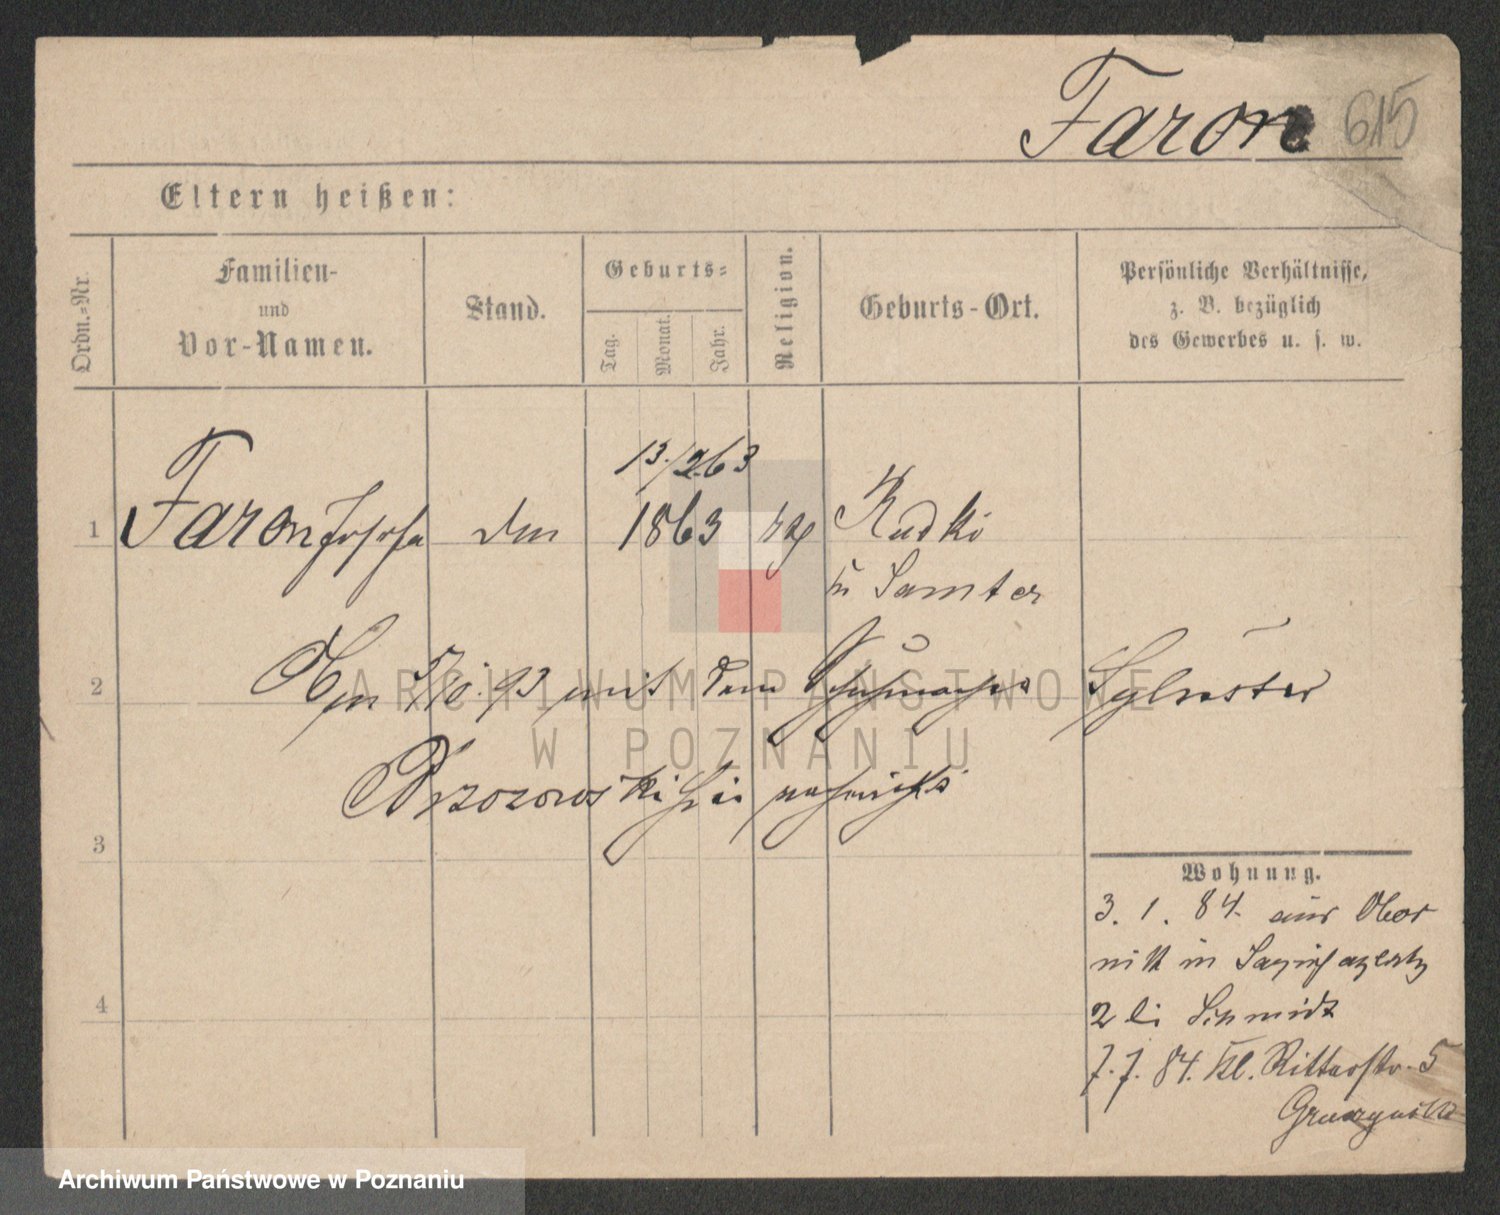 Faron 615
Eltern heißen:
Ordn.=Nr.
Familien-
und
Vor-Namen.
Stand.
Geburts=
Tag.
Monat.
Jahr.
Religion.
Geburts-Ort.
Persönliche Verhältnisse,
z. B. bezüglich
des Gewerbes u. s. w.
13./2 63
1 Faron Josefa den 1863 Rudki
Samter
2 5/10. 93 mit dem Schuhmacher Sylvester
Brzozowski sich verheir.
3
Wohnung.
3. 1. 84. aus Obor
nik in Sapiehaplatz
2 bei Schmidt
4
7. 7. 84. Kl. Ritterstr. 5
ARCHIWUM PAŃSTWOWE
W POZNANIU
Archiwum Państwowe w Poznaniu